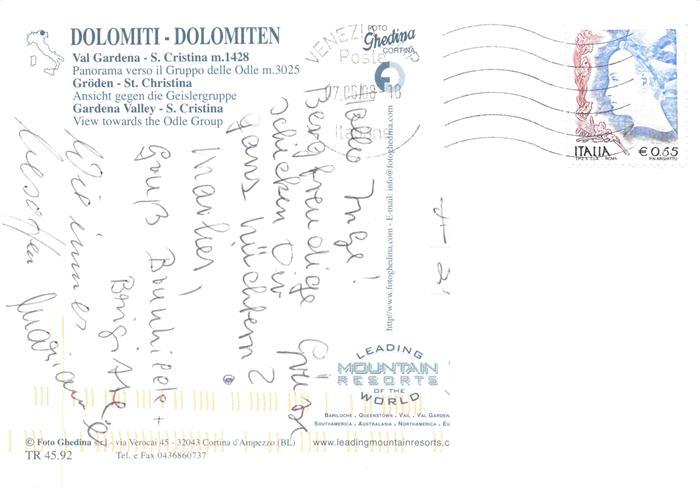 DOLOMITI - DOLOMITEN
Val Gardena - S. Cristina m.1428
Panorama verso il Gruppo delle Odle m.3025
Gröden - St. Christina
Ansicht gegen die Geislergruppe
Gardena Valley - S. Cristina
View towards the Odle Group
FOTO
Ghedina
CORTINA
VENEZI
Poste
07.06/08-18
ITALIA € 0,65
I.P.Z.S. S.p.A. ROMA
Hallo Inge!
Bergfreudige Grüße
schicken Dir
ganz nüchtern?
Marlies,
Gruß Brunhilde +
Brigitte
Wie immer
besoffen Marianne
http://www.fotoghedina.com - E-mail: info@fotoghedina.com
LEADING
MOUNTAIN
RESORTS
OF THE
WORLD
BARILOCHE . QUEENSTOWN . VAIL . VAL GARDEN
SOUTHAMERICA . AUSTRALASIA . NORTHAMERICA . EU
www.leadingmountainresorts.c
© Foto Ghedina s.r.l. - via Verocai 45 - 32043 Cortina d'Ampezzo (BL)
TR 45.92 Tel. e Fax 0436860737